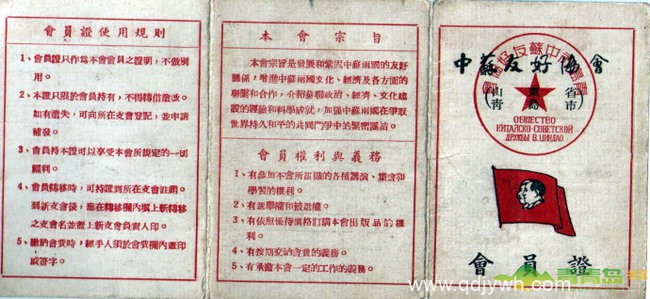 會員證使用規則
1、會員證只作為本會會員之證明，不做別
用。
2、本證只限於會員持有，不得轉借塗改。
如有遺失，可向所在支會登記，並申請
補發。
3、會員持本證可以享受本會所規定的一切
權利。
4、會員轉移時，可持證到所在支會註銷。
到新支會後，應在轉移欄內填上新轉移
之支會名並蓋上新支會負責人印。
5、繳納會費時，經手人須於會費欄內蓋印
或簽字。
本會宗旨
本會宗旨是發展和鞏固中蘇兩國的友好
關係，增進中蘇兩國文化、經濟及各方面的
聯繫和合作，介紹蘇聯政治、經濟、文化建
設的經驗和科學成就，加強中蘇兩國在爭取
世界持久和平的共同鬥爭中的緊密團結。
會員權利與義務
1、有參加本會所組織的各種講演、集會和
學習的權利。
2、有選舉權和被選權。
3、有依照優待價格訂購本會出版品的權
利。
4、有按期交納會費的義務。
5、有承擔本會一定的工作的義務。
中蘇友好協會
(山東省
青島市)
ОБЩЕСТВО
КИТАЙСКО-СОВЕТСКОЙ
ДРУЖБЫ В Г. ЦИНДАО
會員證
青青岛
www.qdjywh.com